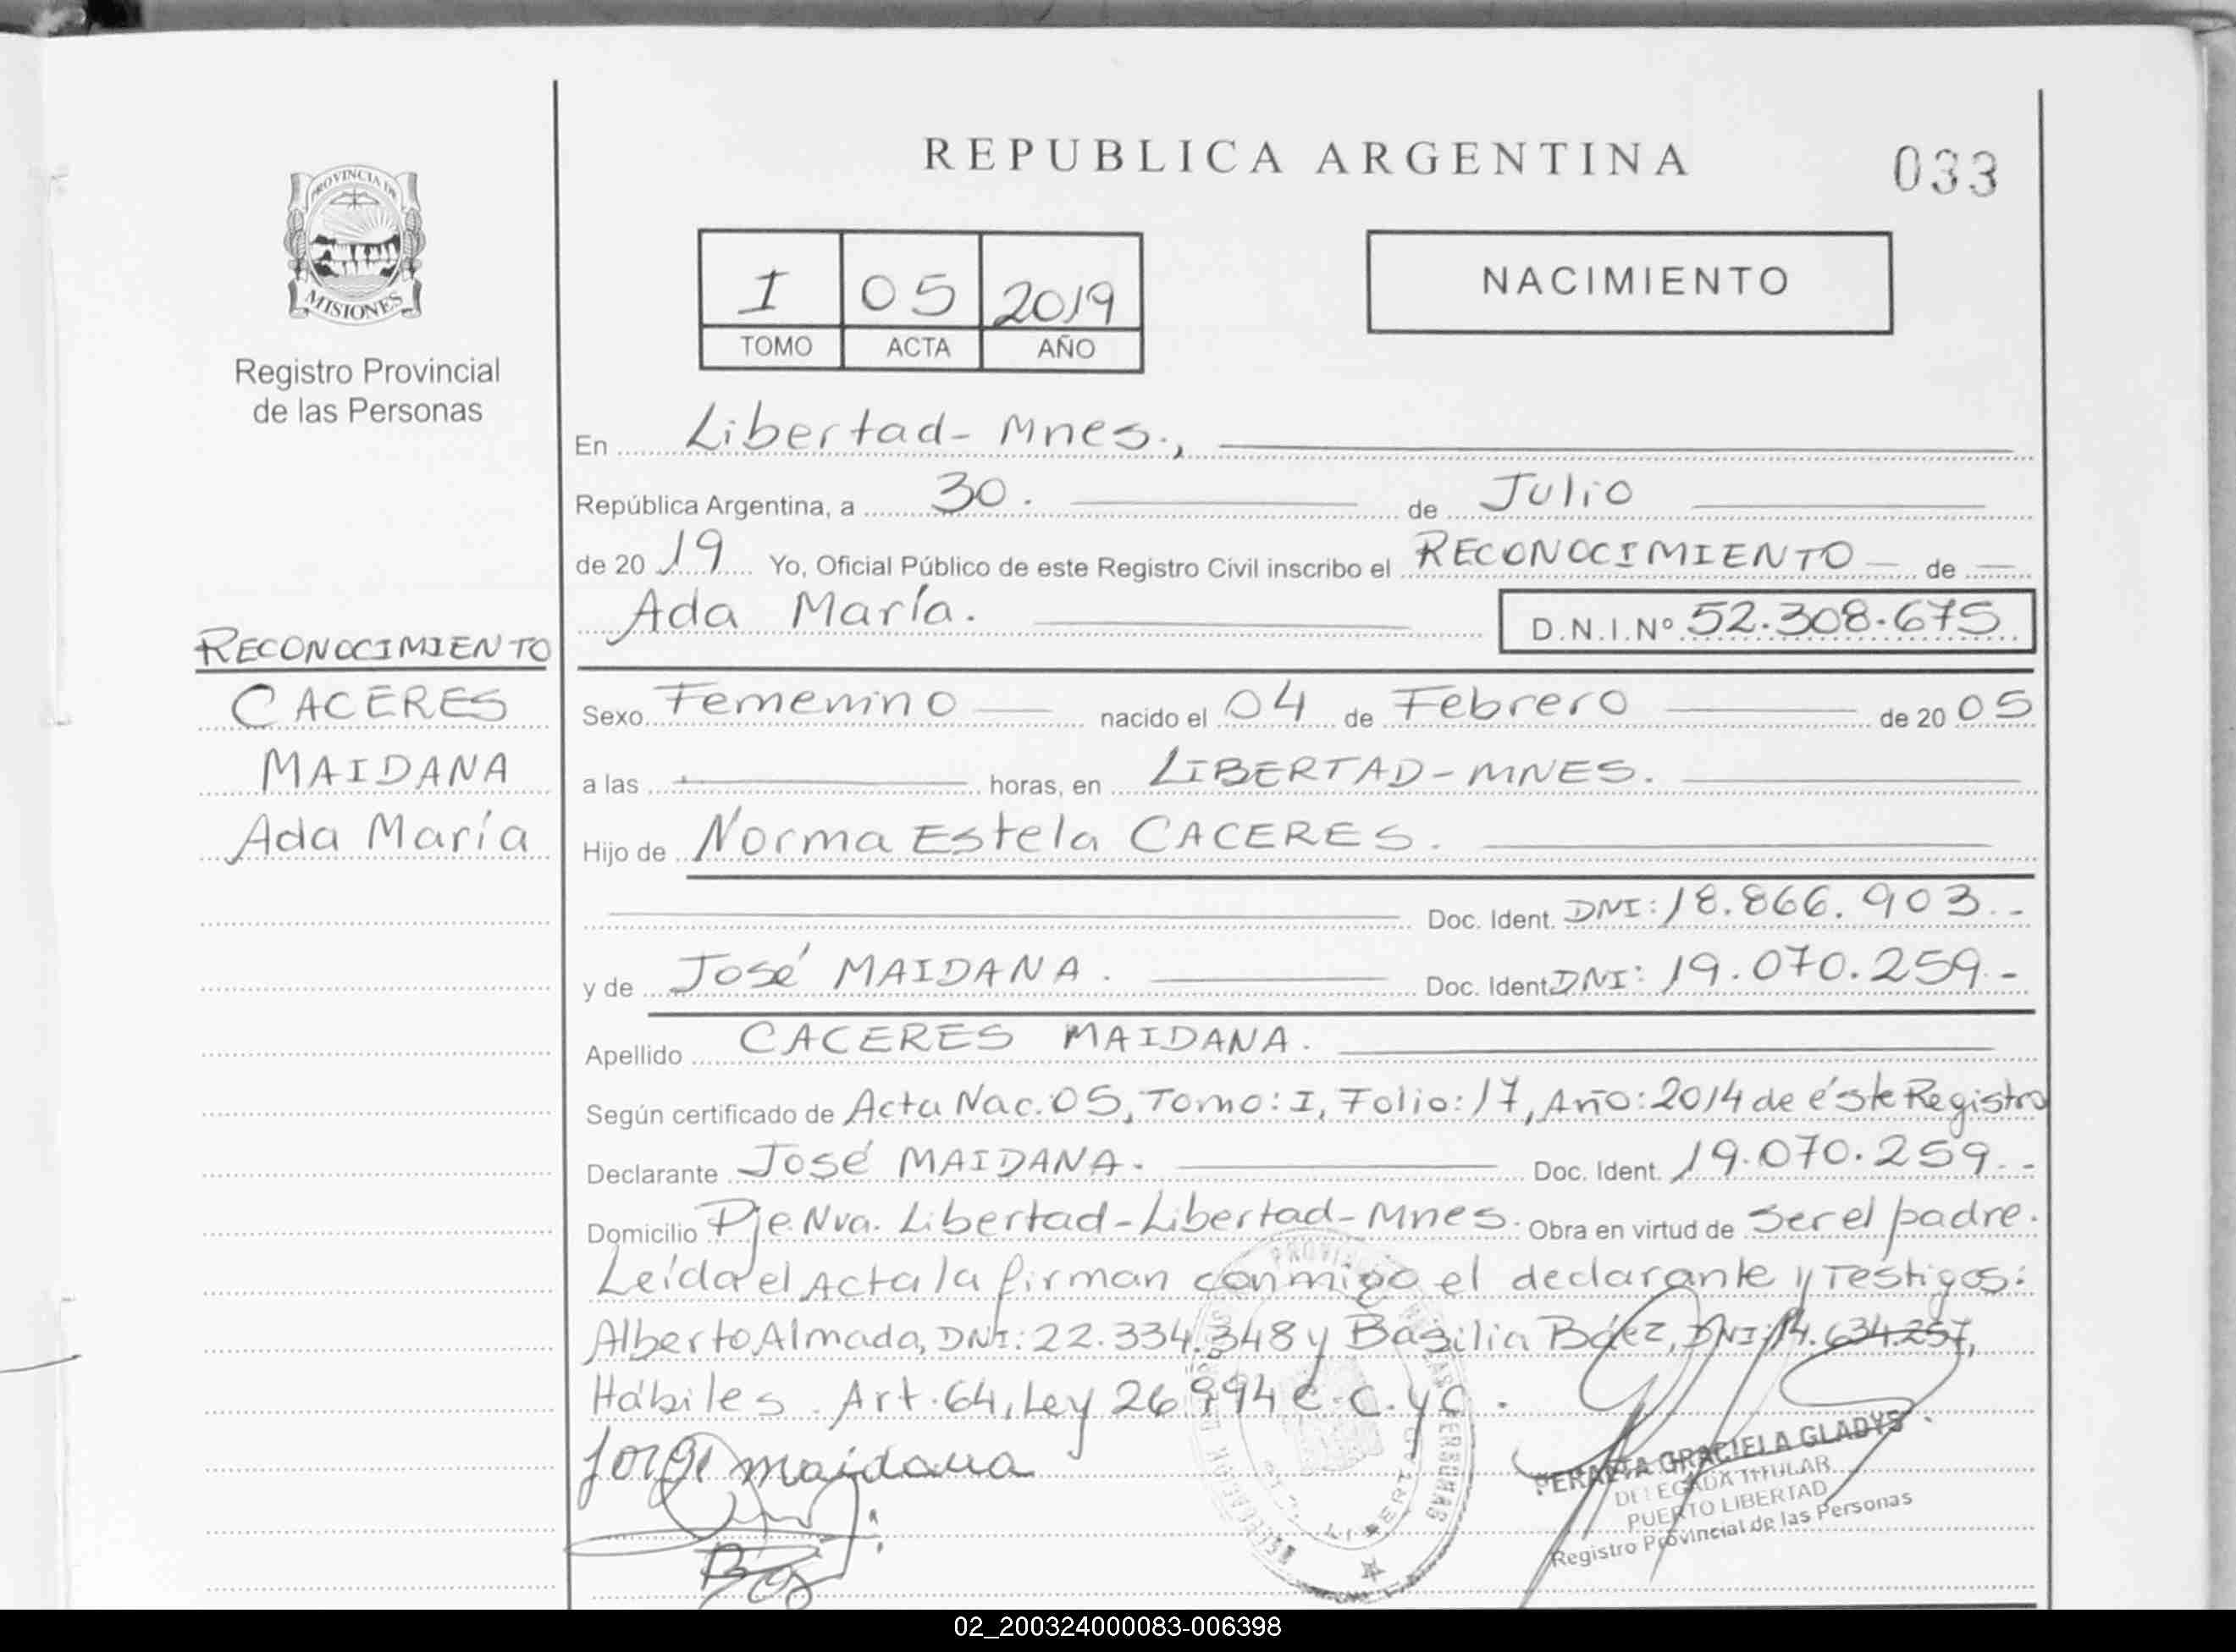 REPUBLICA ARGENTINA
033
PROVINCIA DE
MISIONES
Registro Provincial
de las Personas
I 05 2019
TOMO ACTA AÑO
NACIMIENTO
En Libertad - Mnes.,
República Argentina, a 30. de Julio
de 20 19 Yo, Oficial Público de este Registro Civil inscribo el RECONOCIMIENTO de
Ada María. D.N.I.Nº 52.308.675
RECONOCIMIENTO
CACERES
MAIDANA
Ada María
Sexo Femenino nacido el 04 de Febrero de 20 05
a las horas, en LIBERTAD - MNES.
Hijo de Norma Estela CACERES.
Doc. Ident. DNI: 18.866.903.-
y de José MAIDANA. Doc. Ident. DNI: 19.070.259.-
Apellido CACERES MAIDANA.
Según certificado de Acta Nac. 05, Tomo: I, Folio: 17, Año: 2014 de éste Registro
Declarante José MAIDANA. Doc. Ident. 19.070.259.-
Domicilio Pje. Nva. Libertad - Libertad - Mnes. Obra en virtud de Ser el padre.
Leída el Acta la firman conmigo el declarante y Testigos:
Alberto Almada, DNI: 22.334.348 y Basilia Báez, DNI: 14.634.257,
Hábiles. Art. 64, Ley 26994 C.C. y C.
Jorge maidana
PERALTA GRACIELA GLADYS
DELEGADA TITULAR
PUERTO LIBERTAD
Registro Provincial de las Personas
02_200324000083-006398